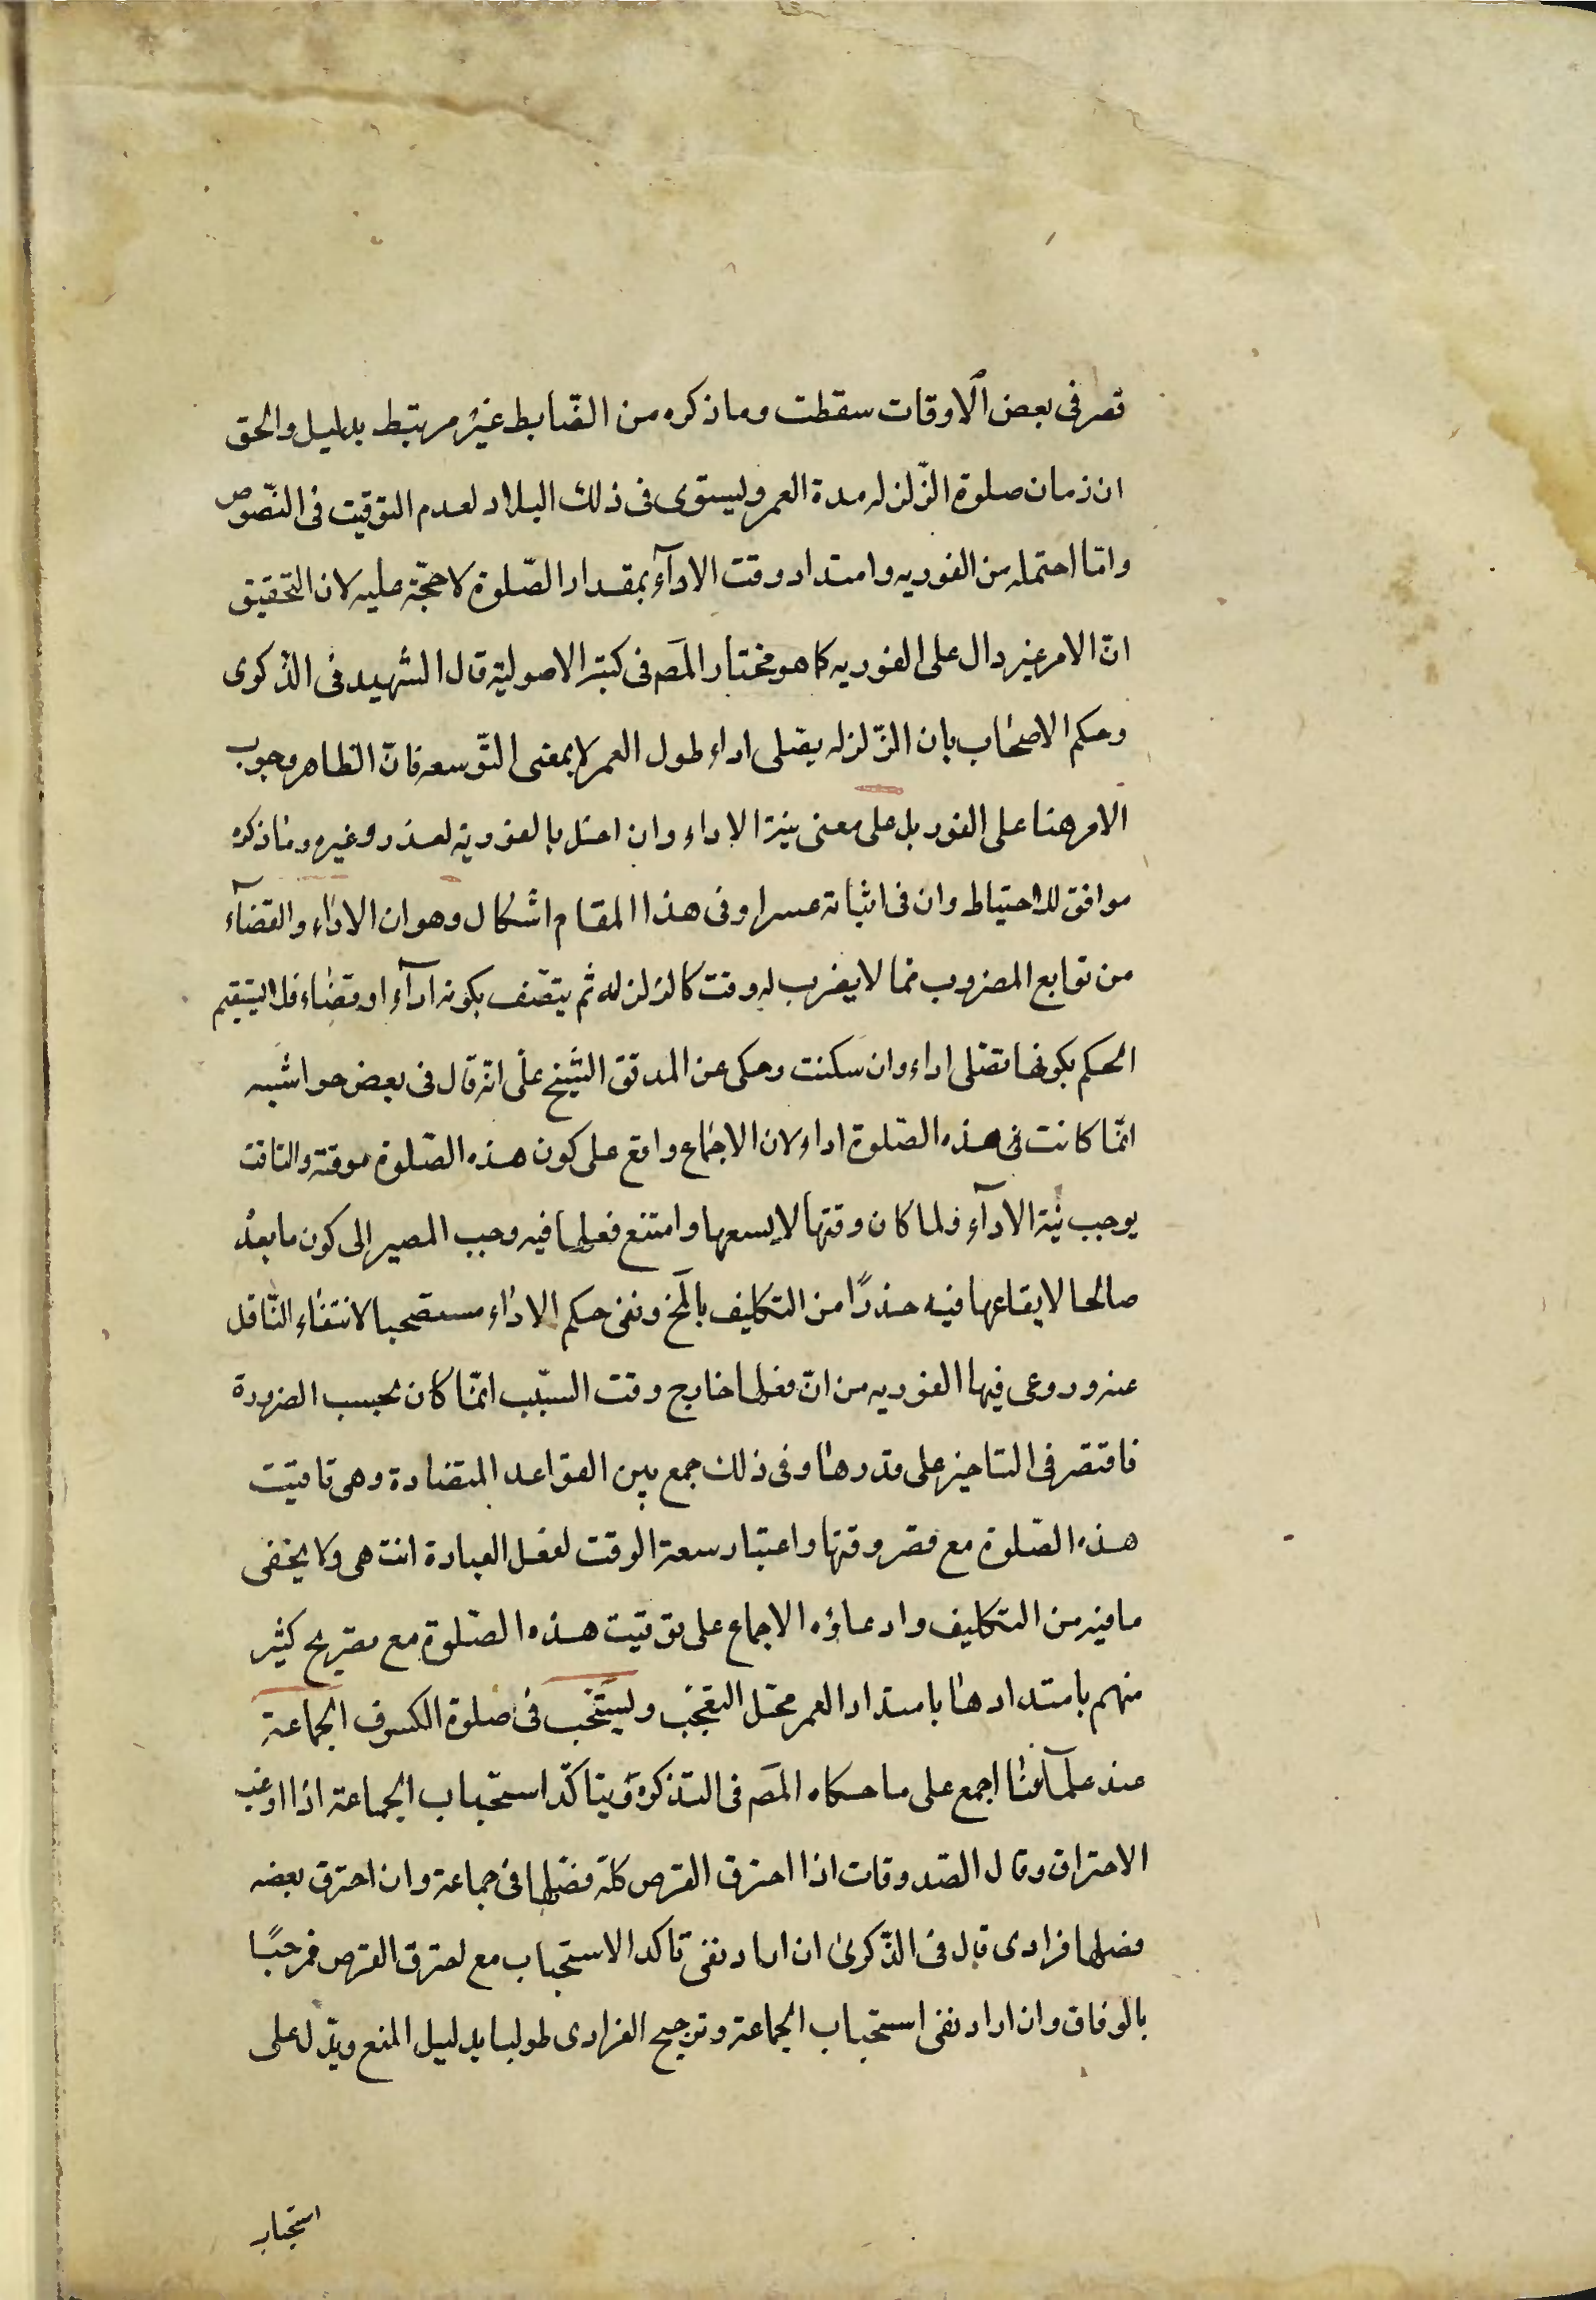 قصر فى بعض الاوقات سقطت وما ذكره من الضّابط غير مرتبط بدليل والحق
ان زمان صلوة الزّلزله مدة العمر ويستوى فى ذلك البلاد لعدم التوقيت فى النّصوص
وامّا احتمله من الفوريه وامتداد وقت الادآء بمقدار الصّلوة لا حجّة عليه لان التحقيق
انّ الامر غير دال على الفوريه كما هو مختار المص فى كتبه الاصولية قال الشهيد فى الذكرى
وحكم الاصحاب بان الزّلزله يصلى اداء طول العمر لا بمعنى التّوسعه فانّ الظاهر وجوب
الامر هنا على الفور بل على معنى نية الاداء وان اخلّ بالفورية لعذر وغيره وما ذكره
موافق للاحتياط وان فى اثباته عسرا وفى هذا المقام اشكال وهو ان الاداء والقضآء
من توابع المضروب فما لا يضرب له وقت كالزلزله ثم يتصف بكونه ادآء او قضاء فلا يستقيم
الحكم بكونها تصلى اداء وان سكنت وحكى عن المدقق الشّيخ على انه قال فى بعض حواشيه
انمّا كانت فى هذه الصّلوة اداء لان الاجماع واقع على كون هذه الصّلوة موقتة والتاقت
يوجب نيّة الادآء فلما كان وقتها لا يسعها وامتنع فعلها فيه وجب المصير الى كون ما بعد
صالحا لايقاعها فيه حذرًا من التكليف بالمح ونفى حكم الاداء مستصحبا لانتفاء النّاقل
عنه وروعى فيها الفوريه من انّ فعلها خارج وقت السّبب انمّا كان بحسب الضرورة
فاقتصر فى التاخير على قدرها وفى ذلك جمع بين القواعد المتضادة وهى تاقيت
هذه الصّلوة مع قصر وقتها واعتبار سعة الوقت لفعل العبادة انتهى ولا يخفى
ما فيه من التكليف وادعاؤه الاجماع على توقيت هذه الصّلوة مع تصريح كثير
منهم بامتدادها بامتداد العمر محل التعجّب ويستحّب فى صلوة الكسوف الجماعة
عند علمآئنا اجمع على ما حكاه المص فى التذكرة ويتاكّد استحباب الجماعة اذا اوعب
الاحتراق وقال الصّدوقان اذا احترق القرص كلّه فصّلها فى جماعة وان احترق بعضه
فصلها فرادى قال فى الذّكرى ان اراد نفى تاكد الاستحباب مع احترق القرص فمرحبًا
بالوفاق وان اراد نفى استحباب الجماعة وترجيح الفرادى طولبا بدليل المنع ويدّل على
استحباب